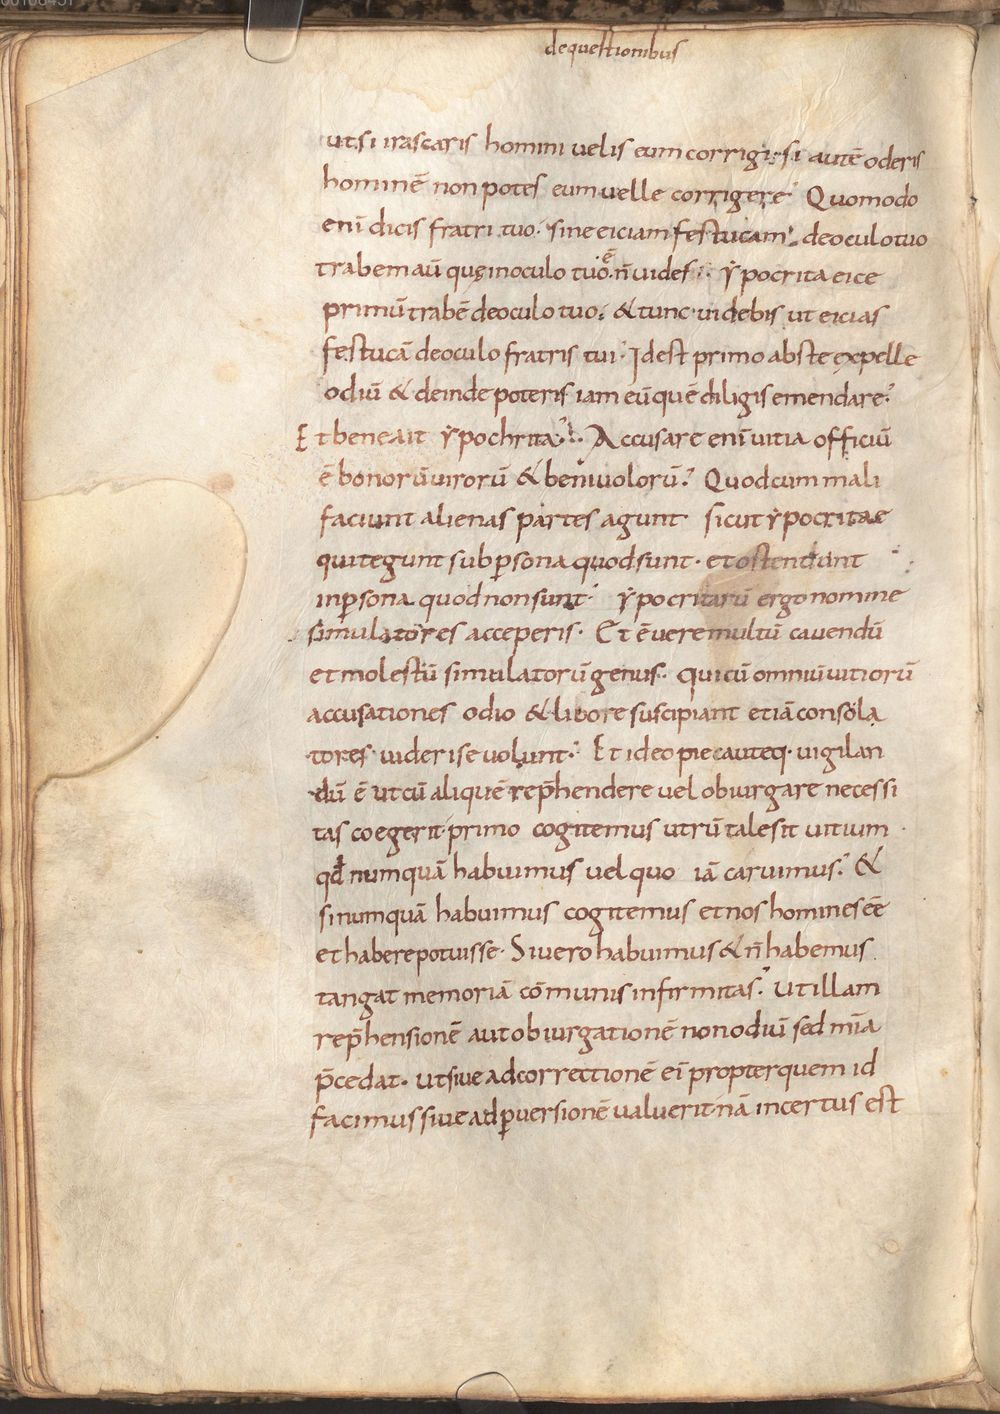 de questionibus
ut si irascaris homini velis eum corrigi. si autē oderis
hominē non potes eum velle corrigere. Quomodo
enī dicis fratri tuo. sine eiciam festucam. de oculo tuo
trabem aū quę in oculo tuo ē n̄ vides. ẏpocrita eice
primū trabē de oculo tuo. & tunc videbis ut eicias
festucā de oculo fratris tui. Id est primo abs te expelle
odiū & deinde poteris iam eū quē diligis emendare.
Et bene ait ẏpochrita. Accusare enī vitia officiū
ē bonorū virorū & benivolorū. Quod cum mali
faciunt alienas partes agunt sicut ẏpocritae
qui tegunt sub p̱sona quod sunt. et ostendunt
in p̱sona quod non sunt. ẏpocritarū ergo nomine
simulatores acceperis. Et ē vere multū cavendū
et molestū simulatorū genus. qui cū omniū vitiorū
accusationes odio & livore suscipiant etiā consola
tores videri se volunt. Et ideo pie cauteq. vigilan
dū ē ut cū aliquē rep̄hendere vel obiurgare necessi
tas coegerit. primo cogitemus utrū tale sit vitium
qd̄ numquā habuimus vel quo iā caruimus. &
si numquā habuimus cogitemus et nos homines eē
et habere potuisse. Si vero habuimus & n̄ habemus
tangat memoriā cōmunis infirmitas. Ut illam
rep̄hensionē aut obiurgationē non odiū sed mīa
p̄cedat. ut sive ad correctionē eī propter quem id
facimus sive ad p̱versionē valuerit. nā incertus est